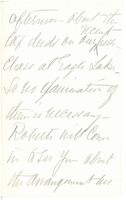 afternoon about the
tax deeds on our recent purchase
Close at Eagle Lake
So no examination of
them is necessary —
Roberts will Come
in & See You about
the arrangement the